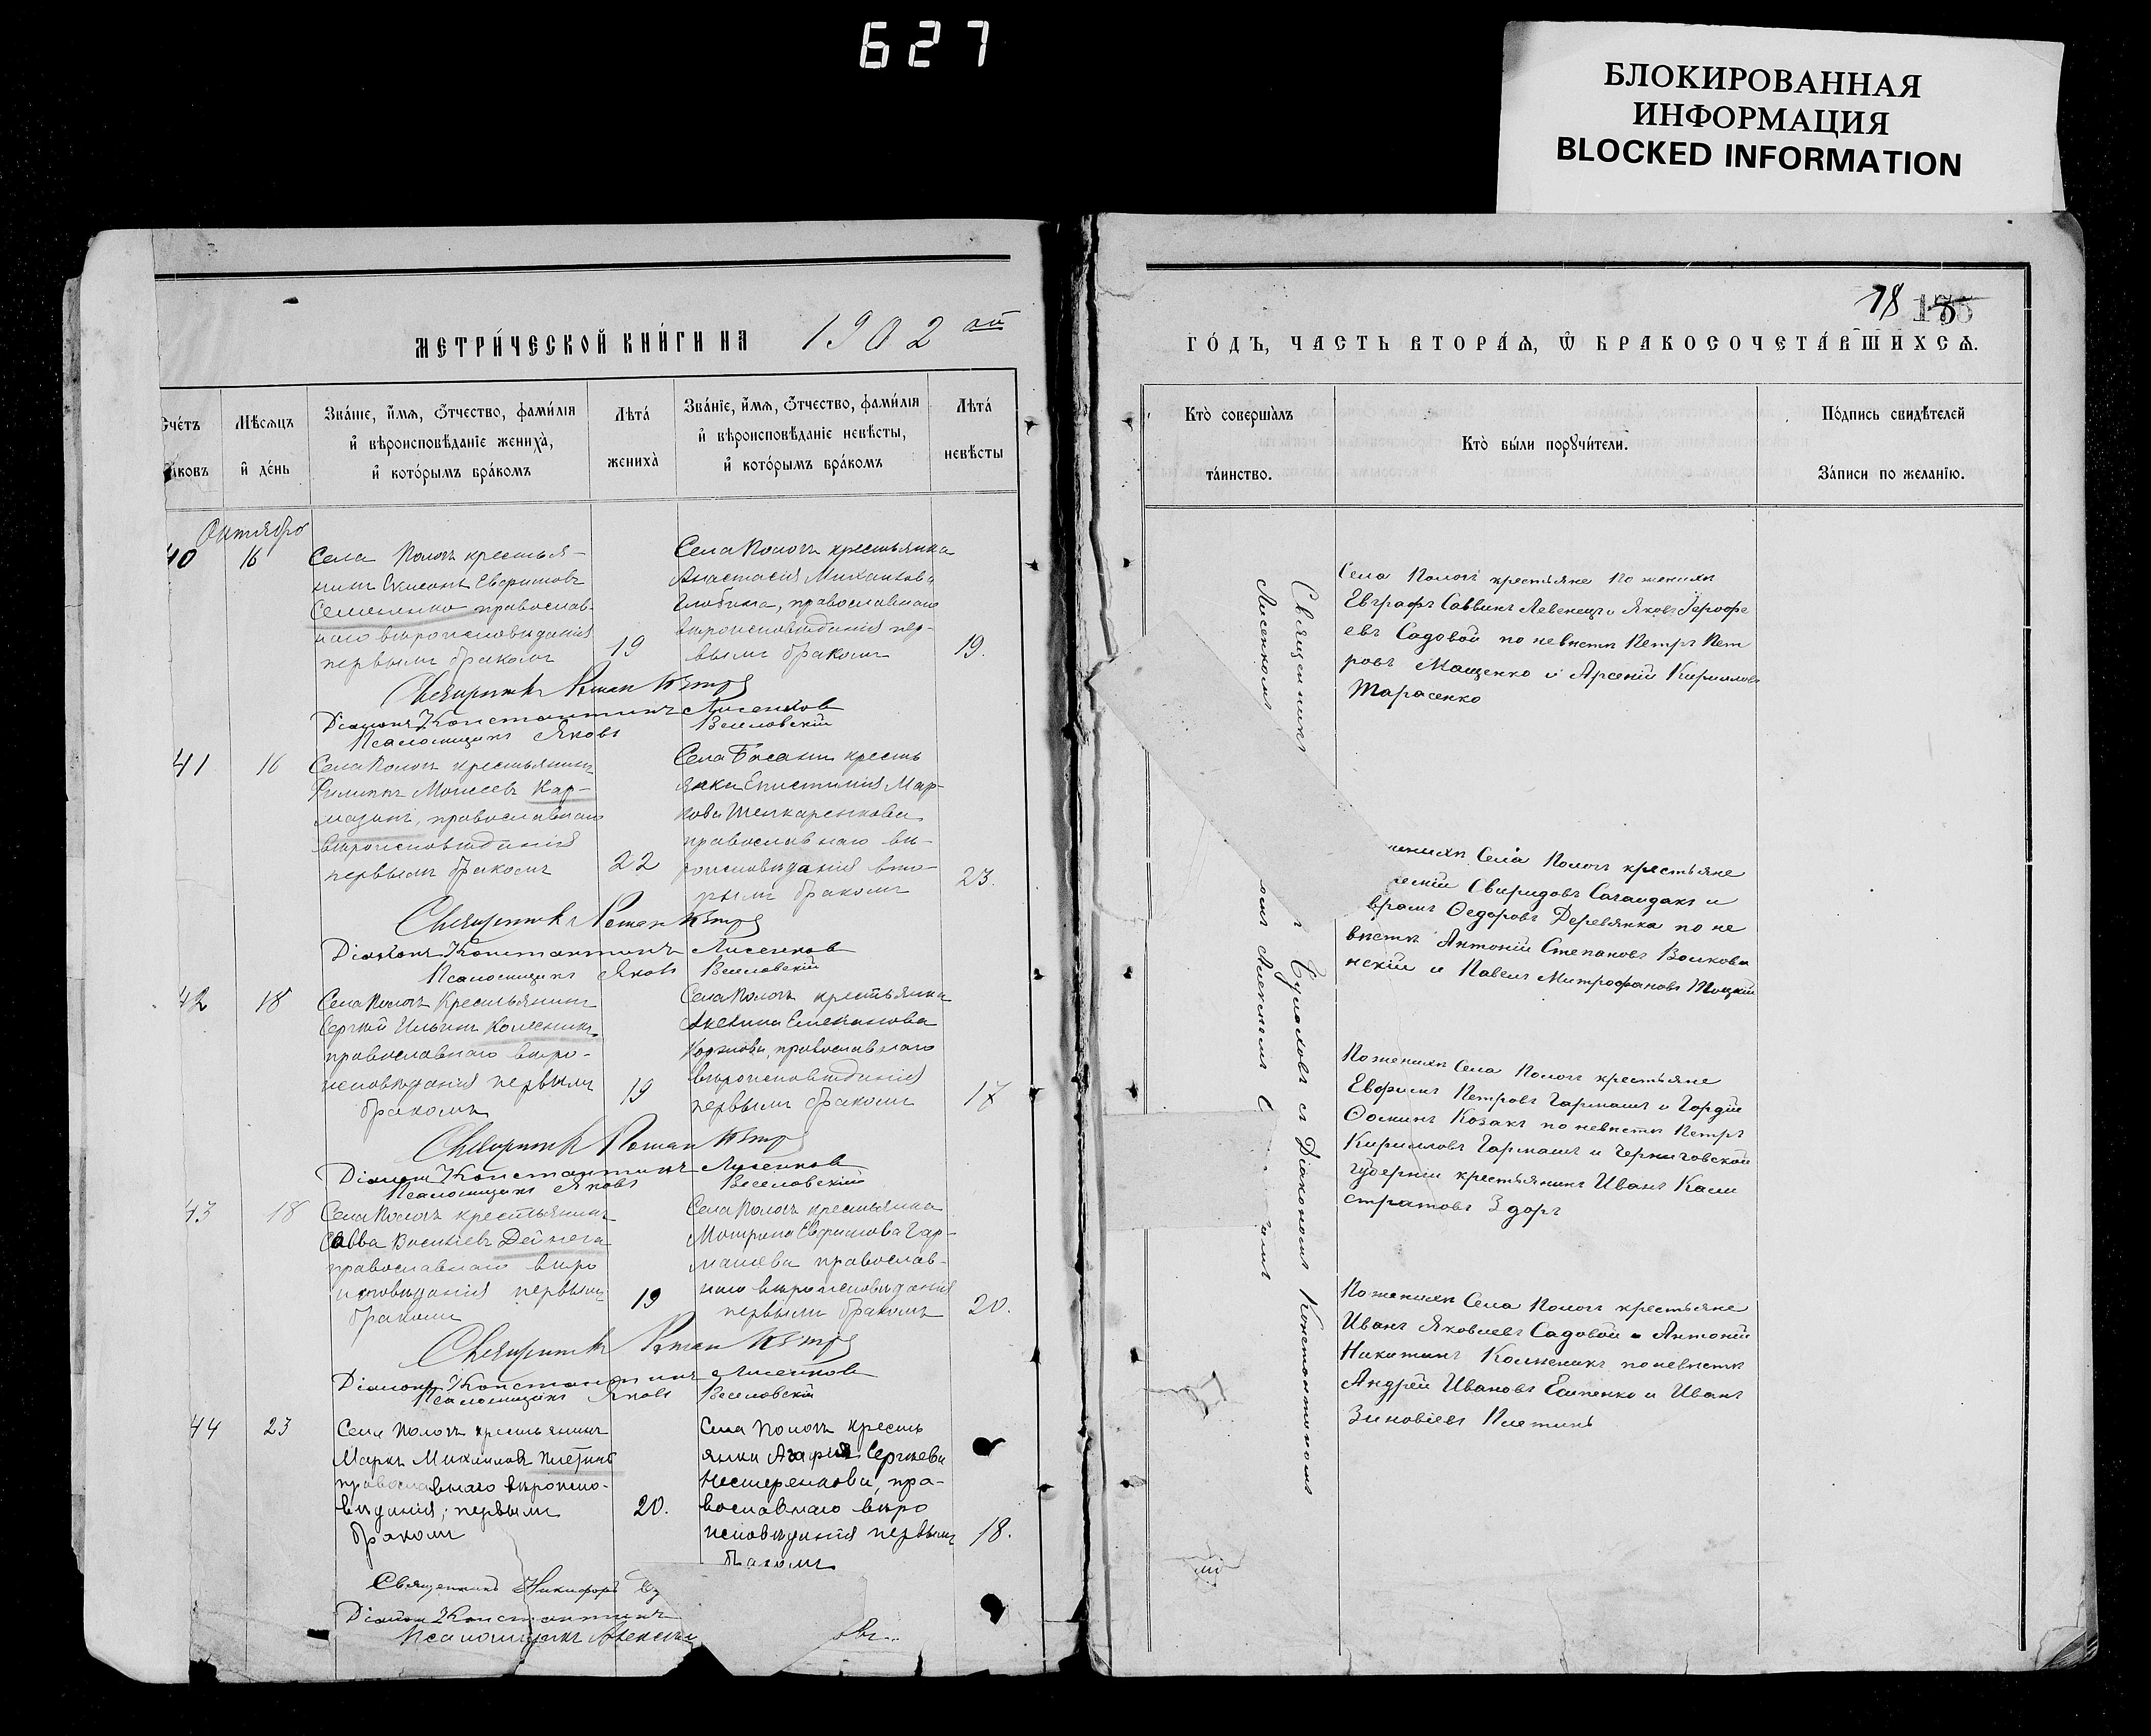 627
БЛОКИРОВАННАЯ
ИНФОРМАЦИЯ
BLOCKED INFORMATION
МЕТРИ́ЧЕСКОЙ КНИ́ГИ НА 1902 ой
Сче́тъ
Мѣсяцъ
и де́нь
Зва́ніе, и́мя, о́тчество, фами́лія
и вѣроисповѣданіе жениха̀,
и кото́рымъ бра́комъ
Лѣта́
жениха̀
Зва́ніе, и́мя, о́тчество, фами́лія
и вѣроисповѣданіе невѣсты,
и кото́рымъ бра́комъ
Лѣта́
невѣсты
Октябрь
40
16
Села Пологъ крестья-
нинъ Евфимовъ
Семененко православ-
наго вѣроисповѣданія
первымъ бракомъ
19
Села Пологъ крестьянка
Анастасія Михаилова
православнаго
вѣроисповѣданія пер-
вымъ бракомъ
19.
Священникъ Роман Петр
Діаконъ Константинъ Лисенков
Псаломщикъ Яковъ Веселовскій
41
16
Села Пологъ крестьянинъ
Филиппъ Моисеевъ Кар-
мазинъ, православнаго
вѣроисповѣданія
первымъ бракомъ
22
Села Басани кресть
янка Епистимія Мар-
кова
православнаго вѣ-
роисповѣданія вто-
рымъ бракомъ
23.
Священникъ Роман Петр
Діаконъ Константинъ Лисенков
Псаломщикъ Яковъ Веселовскій
42
18
Села Пологъ Крестьянинъ
Сергѣй Ильинъ Колесникъ
православнаго вѣро-
исповѣданія первымъ
бракомъ
19
Села Пологъ крестьянка
Акелина Степанова
православнаго
вѣроисповѣданія
первымъ бракомъ
17
Священникъ Роман Петр
Діаконъ Константинъ Лисенков
Псаломщикъ Яковъ Веселовскій
43
18
Села Пологъ крестьянинъ
Савва Васильевъ Дейнега
православнаго вѣро
исповѣданія первымъ
бракомъ
19
Села Пологъ крестьянка
Мотрона Евфимова Гар-
машева православ-
наго вѣроисповѣданія
первымъ бракомъ
20.
Священникъ Роман Петр
Діаконъ Константинъ Лисенков
Псаломщикъ Яковъ Веселовскій
44
23
Села Пологъ крестьянинъ
Маркъ Михаиловъ Плетинь
православнаго вѣроиспо-
вѣданія, первымъ
бракомъ
20.
Села Пологъ кресть
янка Агафія Сергѣева
Нестеренкова, пра-
вославнаго вѣро
исповѣданія первымъ
бракомъ
18.
Священникъ Никифоръ
Діаконъ Константинъ
Псаломщикъ Алексѣй
18
ГО́ДЪ, ЧАСТЬ ВТОРА́Я, Ѿ БРАКОСОЧЕТА́ВШИХСЯ.
Кто̀ соверша̀лъ
та́инство.
Кто̀ бы́ли поручи́тели.
По́дпись свидѣ́телей
За́писи по жела́нію.
Священникъ Гумаховъ съ Діакономъ Константиномъ
Лисенкомъ
Села Пологъ крестьяне по женихѣ
Евграфъ Саввинъ Левенецъ и Яковъ Іерофе
евъ Садовой по невѣстѣ Петръ Пет
ровъ Мащенко и Арсеній Кирилловъ
Тарасенко
женихѣ Села Пологъ крестьяне
Свиридовъ Сагайдакъ и
Федоровъ Деревянка по не
вѣстѣ Антоній Степановъ Волкови
нскій и Павелъ Митрофановъ Тоцкій
По женихѣ Села Пологъ крестьяне
Евфимъ Петровъ Гармашъ и Гордій
Фоминъ Козакъ по невѣстѣ Петръ
Кирилловъ Гармашъ и Черниговской
губерніи крестьянинъ Иванъ Кали
стратовъ Здоръ
По женихѣ Села Пологъ крестьяне
Иванъ Яковлевъ Садовой и Антоній
Никитинъ Колесникъ по невѣстѣ
Андрей Ивановъ Есипенко и Иванъ
Зиновіевъ Плетинь